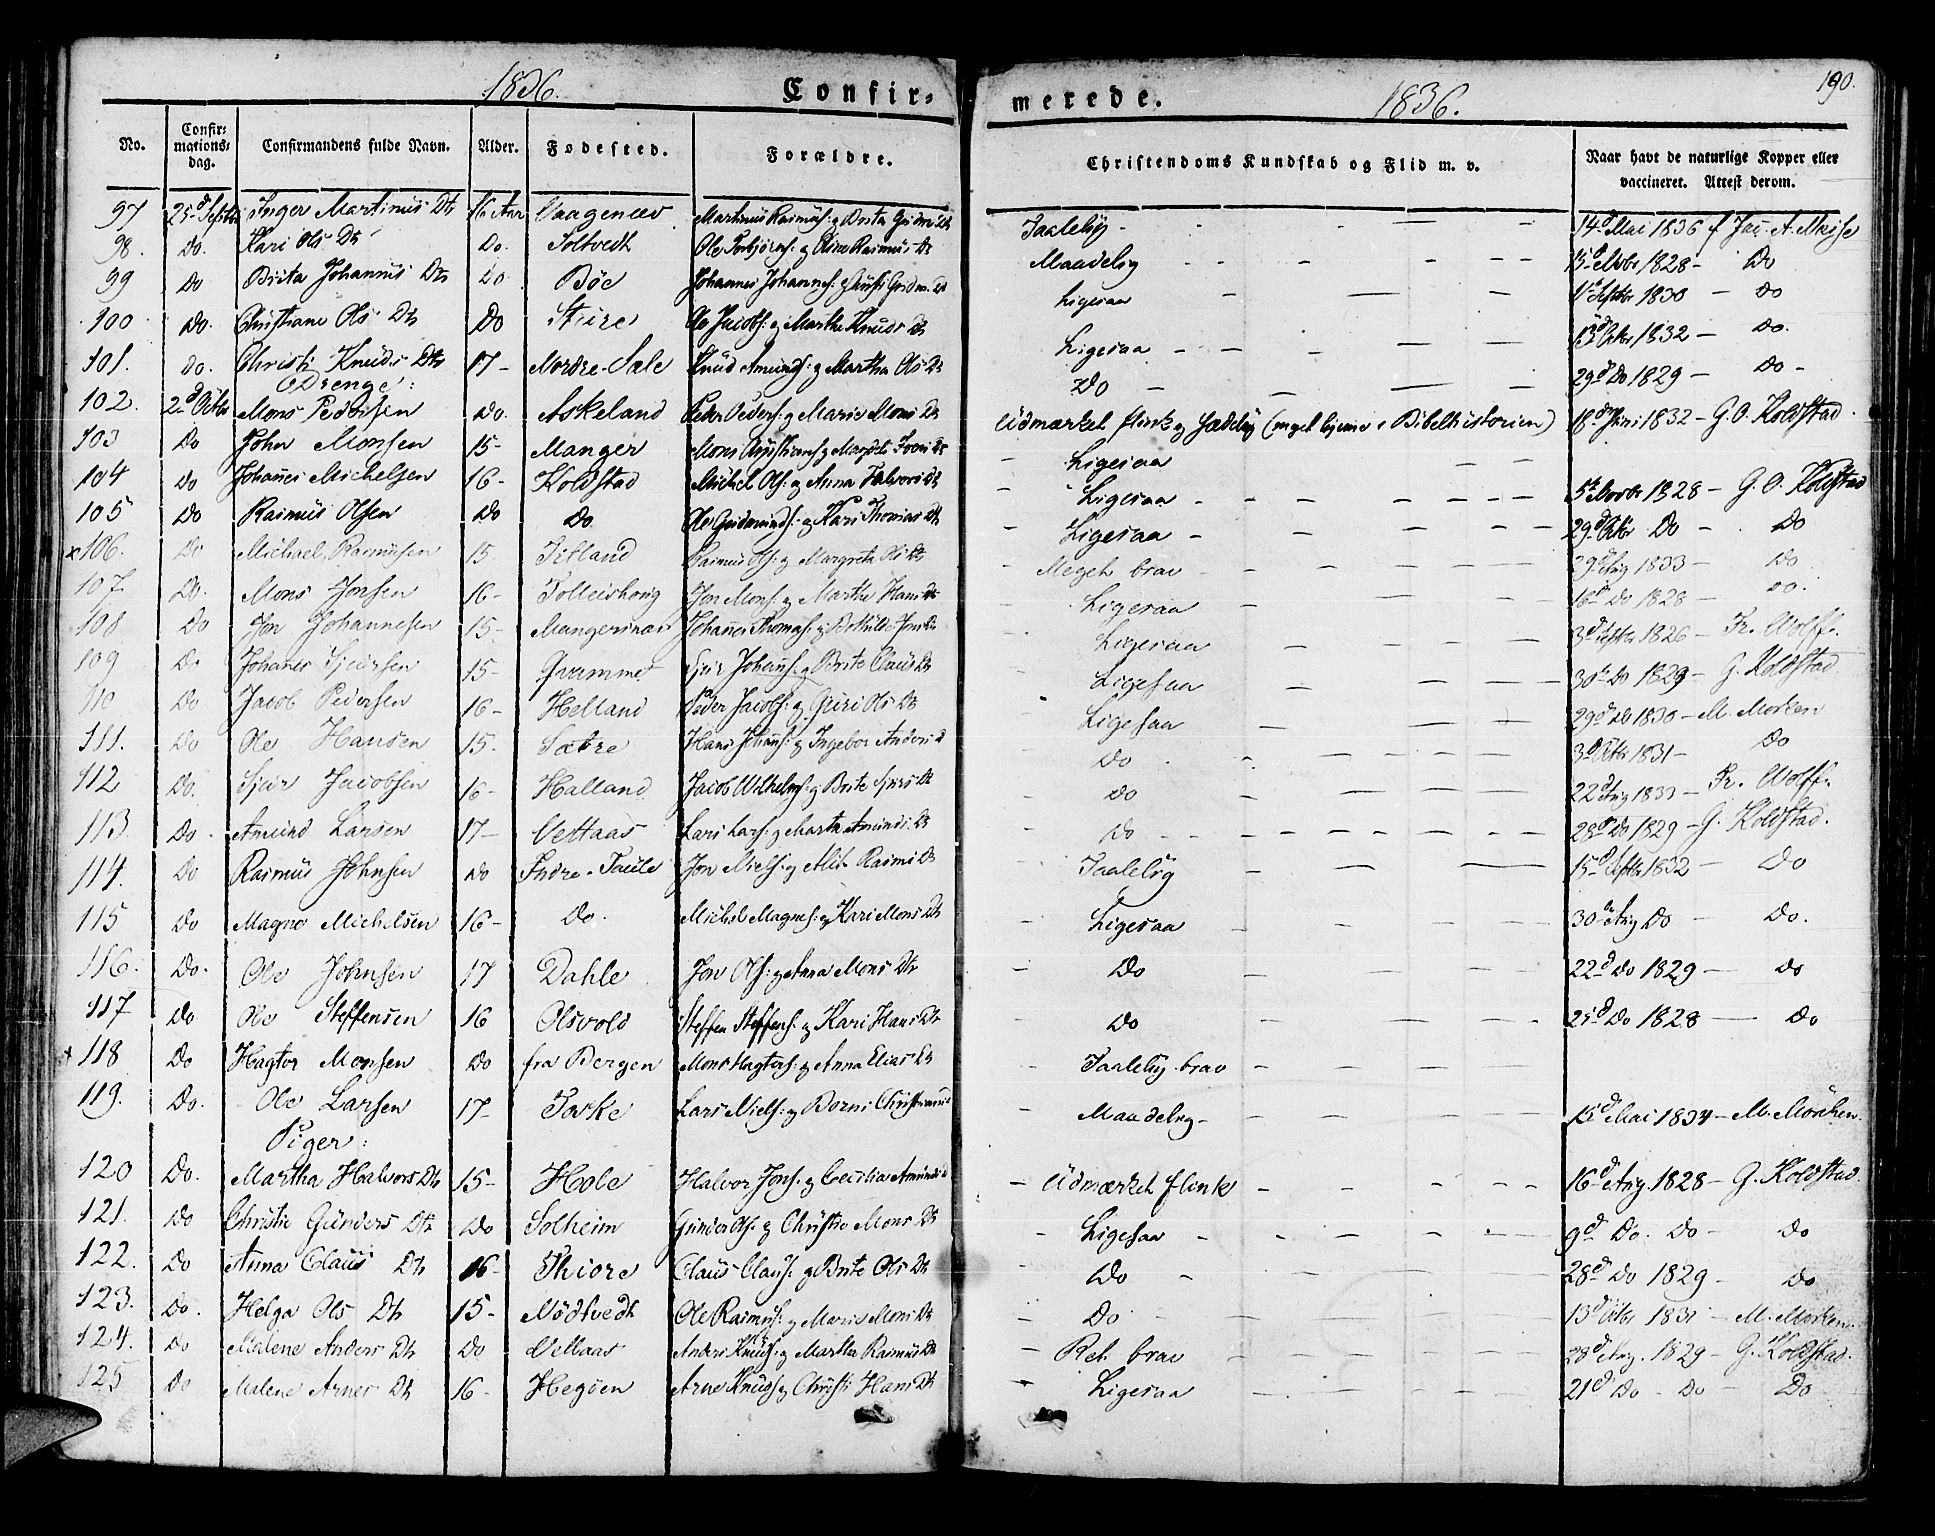 1836. Confir=
merede. 1836. 190.
No. Confirmationsdag. Confirmandens fulde Navn. Alder. Fødested. Forældre. Christendoms Kundskab og Flid m. v. Naar havt de naturlige Kopper eller vaccineret. Attest derom.
97 25d Septbr Inger Martinus Dtr 16 Aar Vaagenæs Martinus Rasmus: og Brita Dtr Taalelig 14d Mai 1836 f
98. Do. Kari Ols Dtr Do. Soltvedt Ole Torbjörns: og Rasmus Dr Maadelig 15d Novbr 1828 - Do
99 Do Brita Johannus Dtr Do Böe Johannes Johannes: og Ligesaa 1d Septbr 1830 - Do
100 Do. Christiane Ols Dtr Do Sture Ole Jacobs: og Marthe Knuds Dr Ligesaa 13d Octbr 1832 - Do.
101. Do. Christi Knuds Dtr 17 - Nordre-Sale Knud Amunds: og Martha Ols Dr Do 29d Do 1829 - Do -
Drenge:
102. 2d Octbr Mons Pedersen Do. Askeland Peder Peders: og Maria Mons Dr Udmærket flink og Sædelig ( hjeme i Bibelhistorien) 18d Juni 1832 - G. O. Koldstad
103 Do John Monsen 15 - Manger Mons og Dr Ligesaa
104 Do Johannes Michelsen 16 - Koldstad Michel Ols: og Anna Halvors Dr Ligesaa 5te Novbr 1828 - G. O. Koldstad
105 Do Rasmus Olsen Do Do Ole Gudmunds: og Kari Thomas Dtr Ligesaa - 29d Octbr Do - Do
x106. Do Michael Rasmusen 15 - Jetland Rasmus Ols: og Margreta Ols Dr Meget brav 29d Aug 1833 - Do
107. Do. Mons Jonsen 16 - Tolleishoug Jon Mons: og Marthe Hans Dr Ligesaa 16d Do 1828 - Do.
108 Do Jon Johannesen 15 - Mangersnæs Johannes Thomas: og Jons Dr Ligesaa 3d Septbr 1826 - Fr. Wolff.
109 Do Johannes Sjursen 15 - Qvamme Sjur Johans: og Brite Claus Dr Ligesaa 30te Do 1829 - G. Koldstad
110 Do Jacob Pedersen 16 - Helland Peder Jacobs: og Guri Ols Dr Ligesaa 29d Do 1830 - M. Morken
111. Do Ole Hansen 15. Sætre Hans Johans: og Ingebor Anders D Do 3d Octbr 1831 - Do
112 Do. Sjur Jacobsen 16 - Halland Jacob Wilhelms: og Brite Sjurs Dr Do 22d Aug 1833 - Fr. Wolff.
113. Do. Amund Larsen 17 - Vettaas Lars Lars: og Marta Amunds: Dr Do 28d Do 1829 - G. Koldstad.
114. Do Rasmus Johnsen Do Indre-Taule Jon Niels: og Rasmus Dr Taalelig 15d Septbr 1832 - Do
115 Do Magne Michelsen 16 - Do. Michel Magnes: og Kari Mons Dr Ligesaa 30te Aug Do - Do.
116. Do. Ole Johnsen 17 Dahle Jon Ols: og Anna Mons Dtr Do 22d Do 1829 - Do
117 Do Ole Steffensen 16 Olsvold Steffen Steffens: og Kari Hans Dtr Do 25d Do 1828 - Do
x 118 Do Hagtor Monsen Do fra Bergen Mons Hagtors: og Anna Elias Dr Taalelig brav
119. Do. Ole Larsen 17 - Toske Lars Niels: og Borni Maadelig - 15d Mai 1834 - M. Mörchen.
Piger:
120 Do. Martha Halvors Dtr 15 - Hole Halvor Jons: og Cecilia Amunds D Udmærket flink 16d Aug. 1828 - G. Koldstad.
121. Do Christie Gunders Dtr Do Solheim Gunder Ols: og Christie Mons Dr Ligesaa 9d Do. Do - Do
122. Do Anna Claus Dtr 16 - Thiore Claus Claus: og Brite Ols Dr Do 28d Do 1829 - Do
123. Do. Helga Ols Dtr 15 - Nödtvedt Ole Rasmus: og Maris Mons Dr Do 13d Octbr 1831 - M. Morken.
124. Do Malene Anders Dtr Do Vettaas Anders Knuds: og Martha Rasmus Dr Ret brav 28d Aug. 1829 - G. Koldstad.
125 Do Malene Arnes Dtr 16 - Hegöen Arne Knuds: og Christi Hans Dr Ligesaa 21d Do - Do - Do